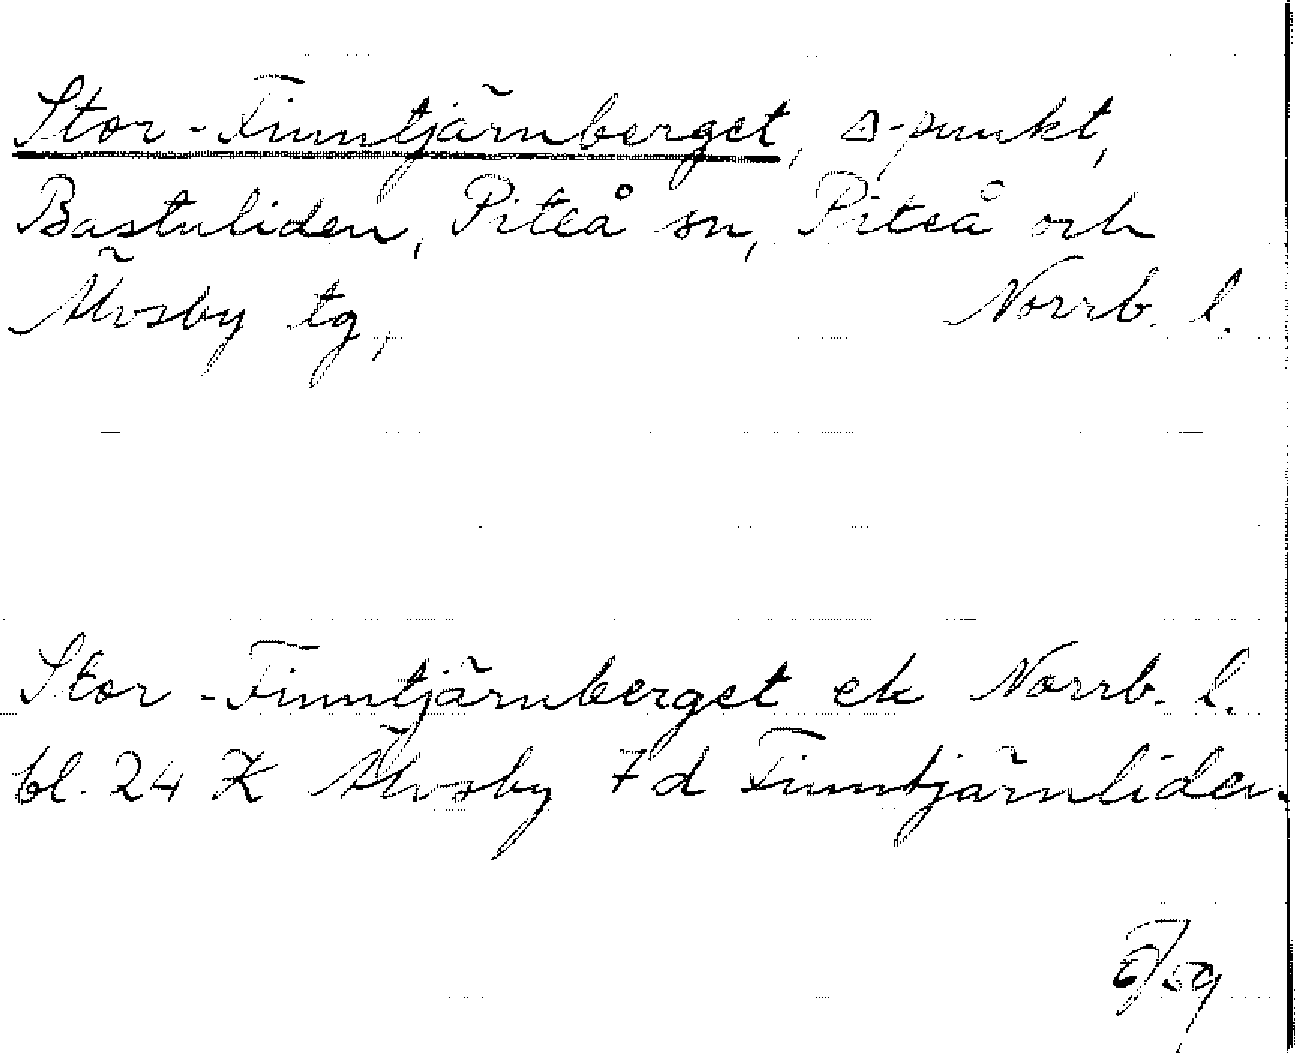 Stor-Finntjärnberget, △-punkt,
Bastuliden, Piteå sn, Piteå och
Älvsby tg, Norrb. l.
Stor-Finntjärnberget ek Norrb. l.
bl. 24 K Älvsby 7d Finntjärnliden.